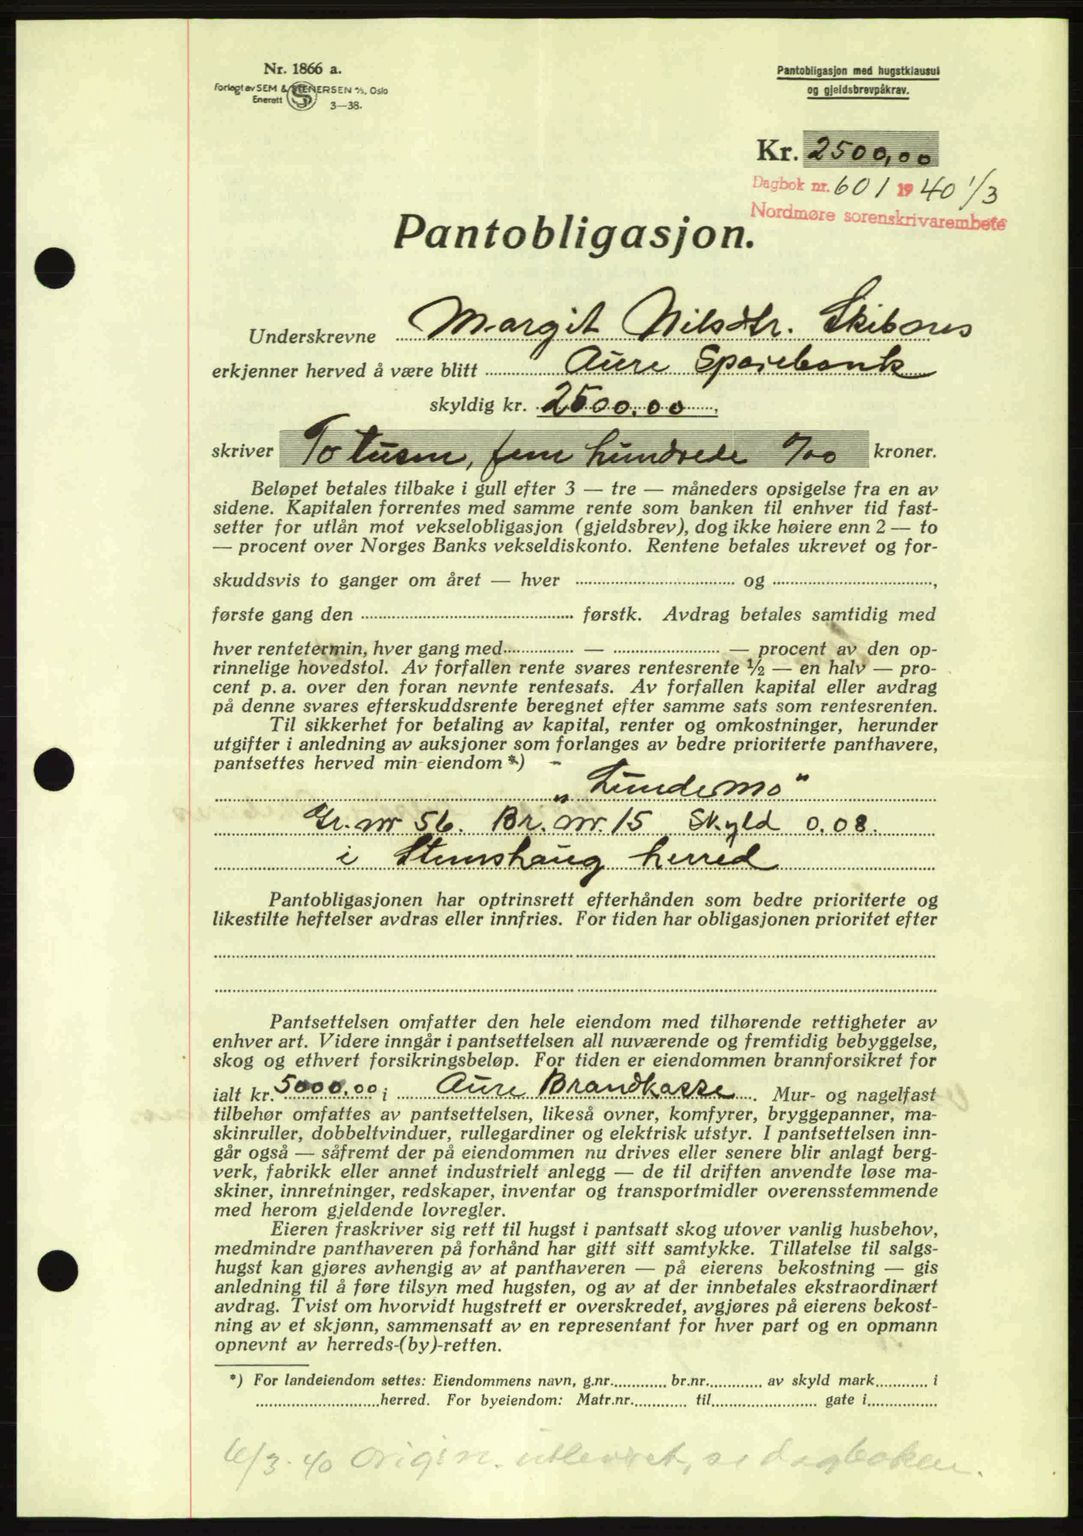 Nr. 1866 a.
Forlagt av SEM & STENERSEN A/S, Oslo
Enerett
3—38.
Pantobligasjon med hugstklausul
og gjeldsbrevpåkrav.
Kr. 2500,00
Dagbok nr. 601 1940 1/3
Nordmøre sorenskrivarembete
Pantobligasjon.
Underskrevne Margit Nilsdtr. Skibnes
erkjenner herved å være blitt Aure Sparebank
skyldig kr. 2500.00,
skriver To tusen, fem hundrede 0/00 kroner.
Beløpet betales tilbake i gull efter 3 — tre — måneders opsigelse fra en av
sidene. Kapitalen forrentes med samme rente som banken til enhver tid fast-
setter for utlån mot vekselobligasjon (gjeldsbrev), dog ikke høiere enn 2 — to
— procent over Norges Banks vekseldiskonto. Rentene betales ukrevet og for-
skuddsvis to ganger om året — hver ........ og ........,
første gang den ........ førstk. Avdrag betales samtidig med
hver rentetermin, hver gang med ........ — ........ — procent av den op-
rinnelige hovedstol. Av forfallen rente svares rentesrente ½ — en halv — pro-
cent p. a. over den foran nevnte rentesats. Av forfallen kapital eller avdrag
på denne svares efterskuddsrente beregnet efter samme sats som rentesrenten.
Til sikkerhet for betaling av kapital, renter og omkostninger, herunder
utgifter i anledning av auksjoner som forlanges av bedre prioriterte panthavere,
pantsettes herved min eiendom *) -
„Lundemo"
Gr. nr 56. Br. nr. 15 Skyld 0.08.
i Stemshaug herred
Pantobligasjonen har optrinsrett efterhånden som bedre prioriterte og
likestilte heftelser avdras eller innfries. For tiden har obligasjonen prioritet efter
Pantsettelsen omfatter den hele eiendom med tilhørende rettigheter av
enhver art. Videre inngår i pantsettelsen all nuværende og fremtidig bebyggelse,
skog og ethvert forsikringsbeløp. For tiden er eiendommen brannforsikret for
ialt kr. 5000.00 i Aure Brandkasse. Mur- og nagelfast
tilbehør omfattes av pantsettelsen, likeså ovner, komfyrer, bryggepanner, ma-
skinruller, dobbeltvinduer, rullegardiner og elektrisk utstyr. I pantsettelsen inn-
går også — såfremt der på eiendommen nu drives eller senere blir anlagt berg-
verk, fabrikk eller annet industrielt anlegg — de til driften anvendte løse ma-
skiner, innretninger, redskaper, inventar og transportmidler overensstemmende
med herom gjeldende lovregler.
Eieren fraskriver sig rett til hugst i pantsatt skog utover vanlig husbehov,
medmindre panthaveren på forhånd har gitt sitt samtykke. Tillatelse til salgs-
hugst kan gjøres avhengig av at panthaveren — på eierens bekostning — gis
anledning til å føre tilsyn med hugsten, og av at der innbetales ekstraordinært
avdrag. Tvist om hvorvidt hugstrett er overskredet, avgjøres på eierens bekost-
ning av et skjønn, sammensatt av en representant for hver part og en opmann
opnevnt av herreds-(by)-retten.
*) For landeiendom settes: Eiendommens navn, g.nr. ........ br.nr. ........ av skyld mark ........ i
........ herred. For byeiendom: Matr.nr. ........ til ........ gate i ........
6/3-40 Origin. utleveret, se dagboken.